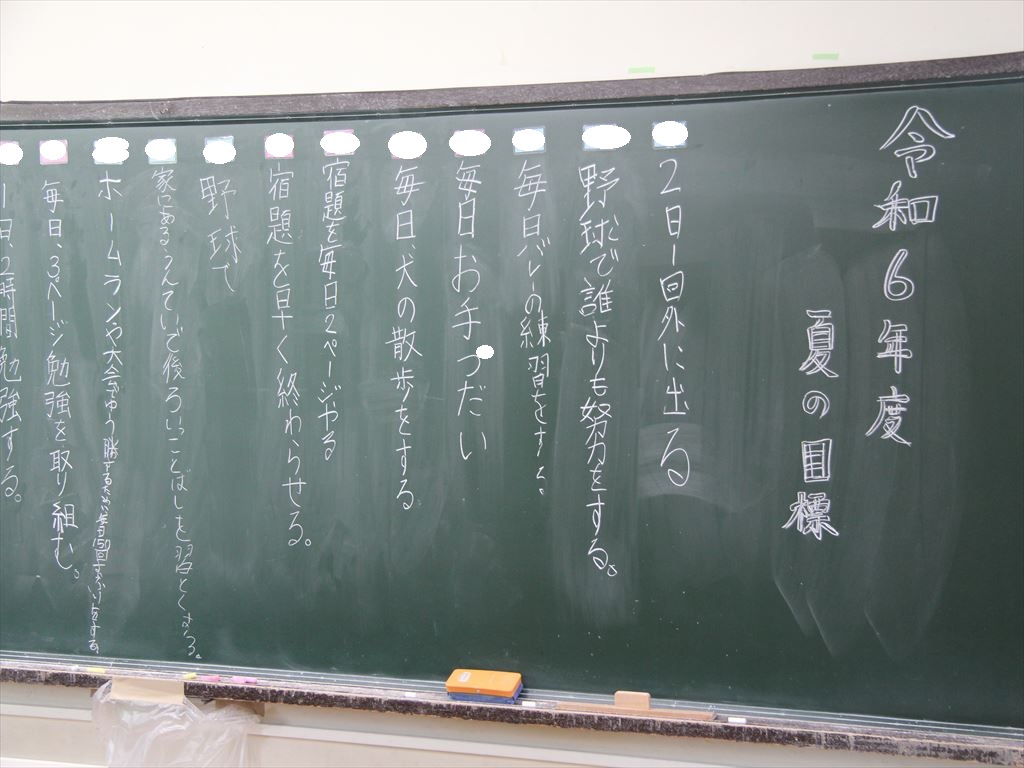 令和6年度
夏の目標
2日1回外に出る
野球で誰よりも努力をする。
毎日バレーの練習をする。
毎日お手つだい
毎日、犬の散歩をする
宿題を毎日2ページやる
宿題を早く終わらせる。
野球で
家にあるていで後ろいことばしを習とくする。
ホームランや大会でゆう勝するため
毎日、3ページ勉強を取り組む。
1日2時間勉強する。